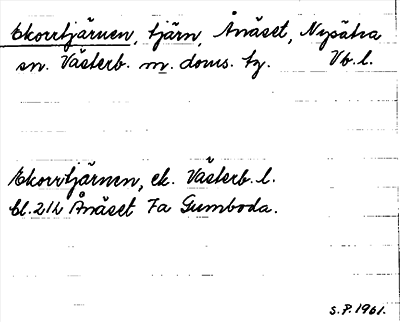 Ekorrtjärnen, tjärn, Ånäset, Nysätra
sn. Västerb. m. doms. tg. Vb. l.
Ekorrtjärnen, ek. Västerb. l.
bl. 212 Ånäset Fa Gumboda.
S.P. 1961.